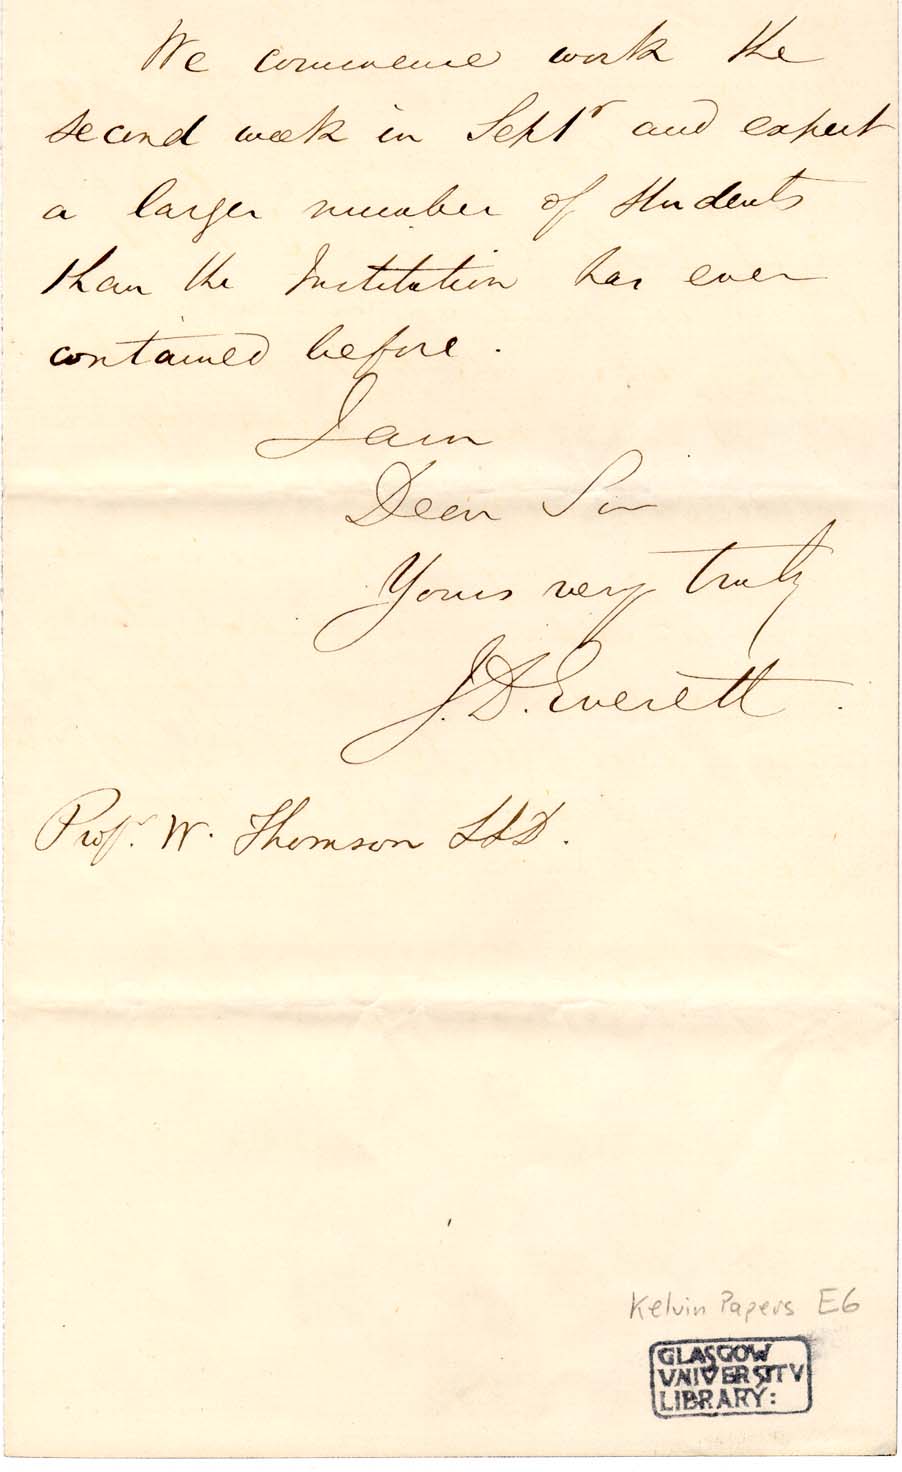 We commence work the
second week in Septr and expect
a larger number of students
than the Institution has ever
contained before.
I am
Dear Sir
Yours very truly
J. D. Everett.
Prof. W. Thomson LLD.
Kelvin Papers E6
GLASGOW
UNIVERSITY
LIBRARY: